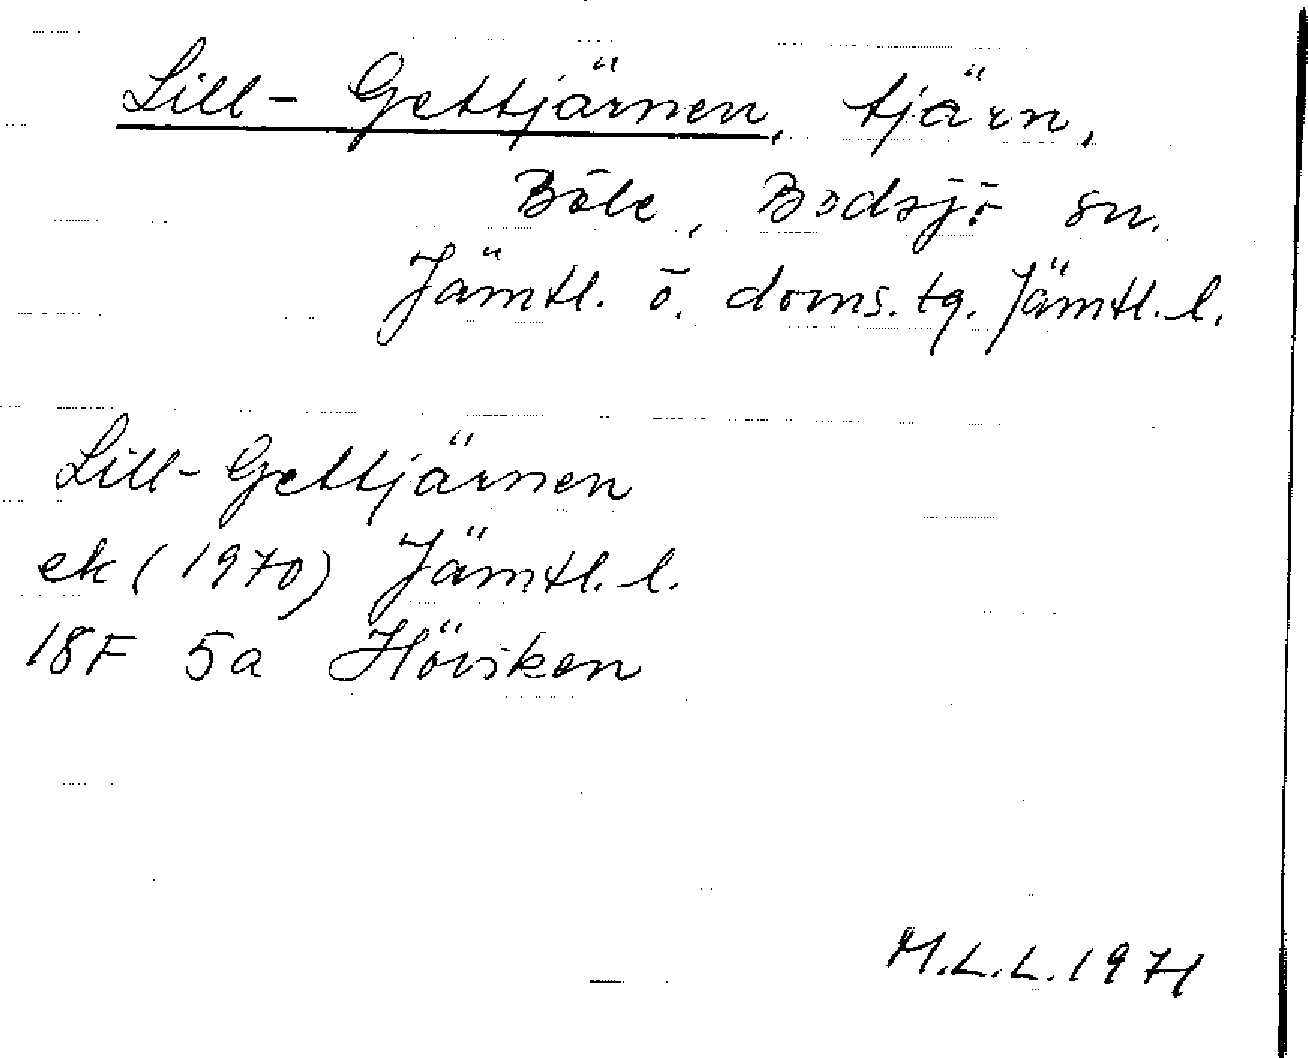 Lill-Gettjärnen, tjärn,
Böle, Bodsjö sn.
Jämtl. ö. doms.tg. Jämtl.l.
Lill-Gettjärnen
ek (1970) Jämtl.l.
18F 5a Höviken
M.L.L. 1971